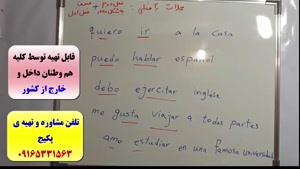 جملات
quiero ir a la casa
puedo hablar español
debo ejercitar inglesa
me gusta viajar a todas partes
amo estudiar en una famosa universidad
قابل تهیه توسط کلیه
هم وطنان داخل و
خارج از کشور
تلفن مشاوره و تهیه ی
پکیج
۰۹۱۶۵۳۳۱۵۶۳